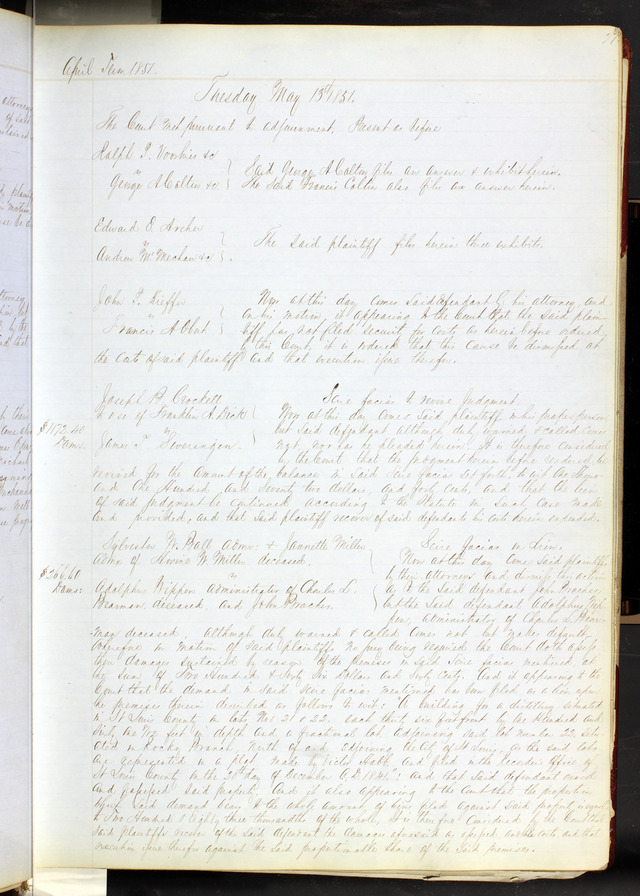 April Term 1851.
77
Tuesday May 13th 1851.
The Court met pursuant to adjournment. Present as before
Ralph P. Voorhies &c
vs
George A Colton &c
Said George A Colton files an answer & exhibit herein.
The Said Francis Colton also files an answer herein.
Edward E. Archer
vs
Andrew McMechan &c
The Said plaintiff files herein three exhibits.
John P. Kieffer
vs
Francis A. Obut
Now at this day comes Said defendant by his attorney, and
on his motion, it appearing to the Court that the said plain-
tiff has not filed security for costs as herein before ordered
by this Court, it is ordered that this cause be dismissed at
the costs of said plaintiff and that execution issue therefor.
Joseph B. Crockett
to use of Franklin A Dick
vs
James T Sweringen
$1172.40
Dams.
Scire facias to revive Judgment
Now at this day comes Said plaintiff in his proper person
but Said defendant although duly warned & called comes
not, nor has he pleaded herein. It is therefore considered
by the Court that the judgment herein before rendered be
revived for the amount of the balance in Said Scire facias set forth to wit One Thous-
and One Hundred and Seventy two dollars, and forty cents, and that the lien
of said Judgment be continued according to the Statute in Such Case made
and provided, and that Said plaintiff recover of said defendant his costs herein expended.
Sylvester W. Ball Admr. & Jannette Miller
Admx of Horine W. Miller deceased.
vs
Adolphus Wippern Administrator of Charles L.
Braman, deceased, and John Pracher.
$266.60
Dams:
Scire facias on Lien.
Now at this day come Said plaintiffs
by their attorneys and dismiss this action
as to the Said defendant John Pracher
but the Said defendant Adolphus Wip-
pern, administrator of Charles L. Bra-
man deceased, although duly warned & called comes not but makes default.
Wherefore on motion of Said plaintiffs no jury being required the Court doth assess
their damages Sustained by reason of the premises in said Scire facias mentioned at
the Sum of Two Hundred & Sixty Six dollars and Sixty cents. And it appearing to the
Court that the demand in Said Scire facias mentioned has been filed as a lien upon
the premises therein described as follows to wit: A building for a distillery situated
in St Louis County on lots Nos 21 & 22. each thirty six feet front by One Hundred and
Sixty feet in depth and a fractional lot adjoining Said lot number 22, situ-
ated in Rocky Branch, North of and adjoining the City of St Louis, as the said lots
are represented on a plat made by and filed in the Recorders office of
St Louis County on the 20th day of December A.D. and that Said defendant owned
and possessed Said property. And it also appearing to the Court that the proportion
which Said demand bears to the whole amount of liens filed against Said property is equal
to Two Hundred & Eighty three thousandths of the whole, it is therefore Considered by the Court that
Said plaintiffs recover of the Said defendant the damages aforesaid as assessed and costs and that
execution issue therefor against the Said proportionable share of the Said premises.